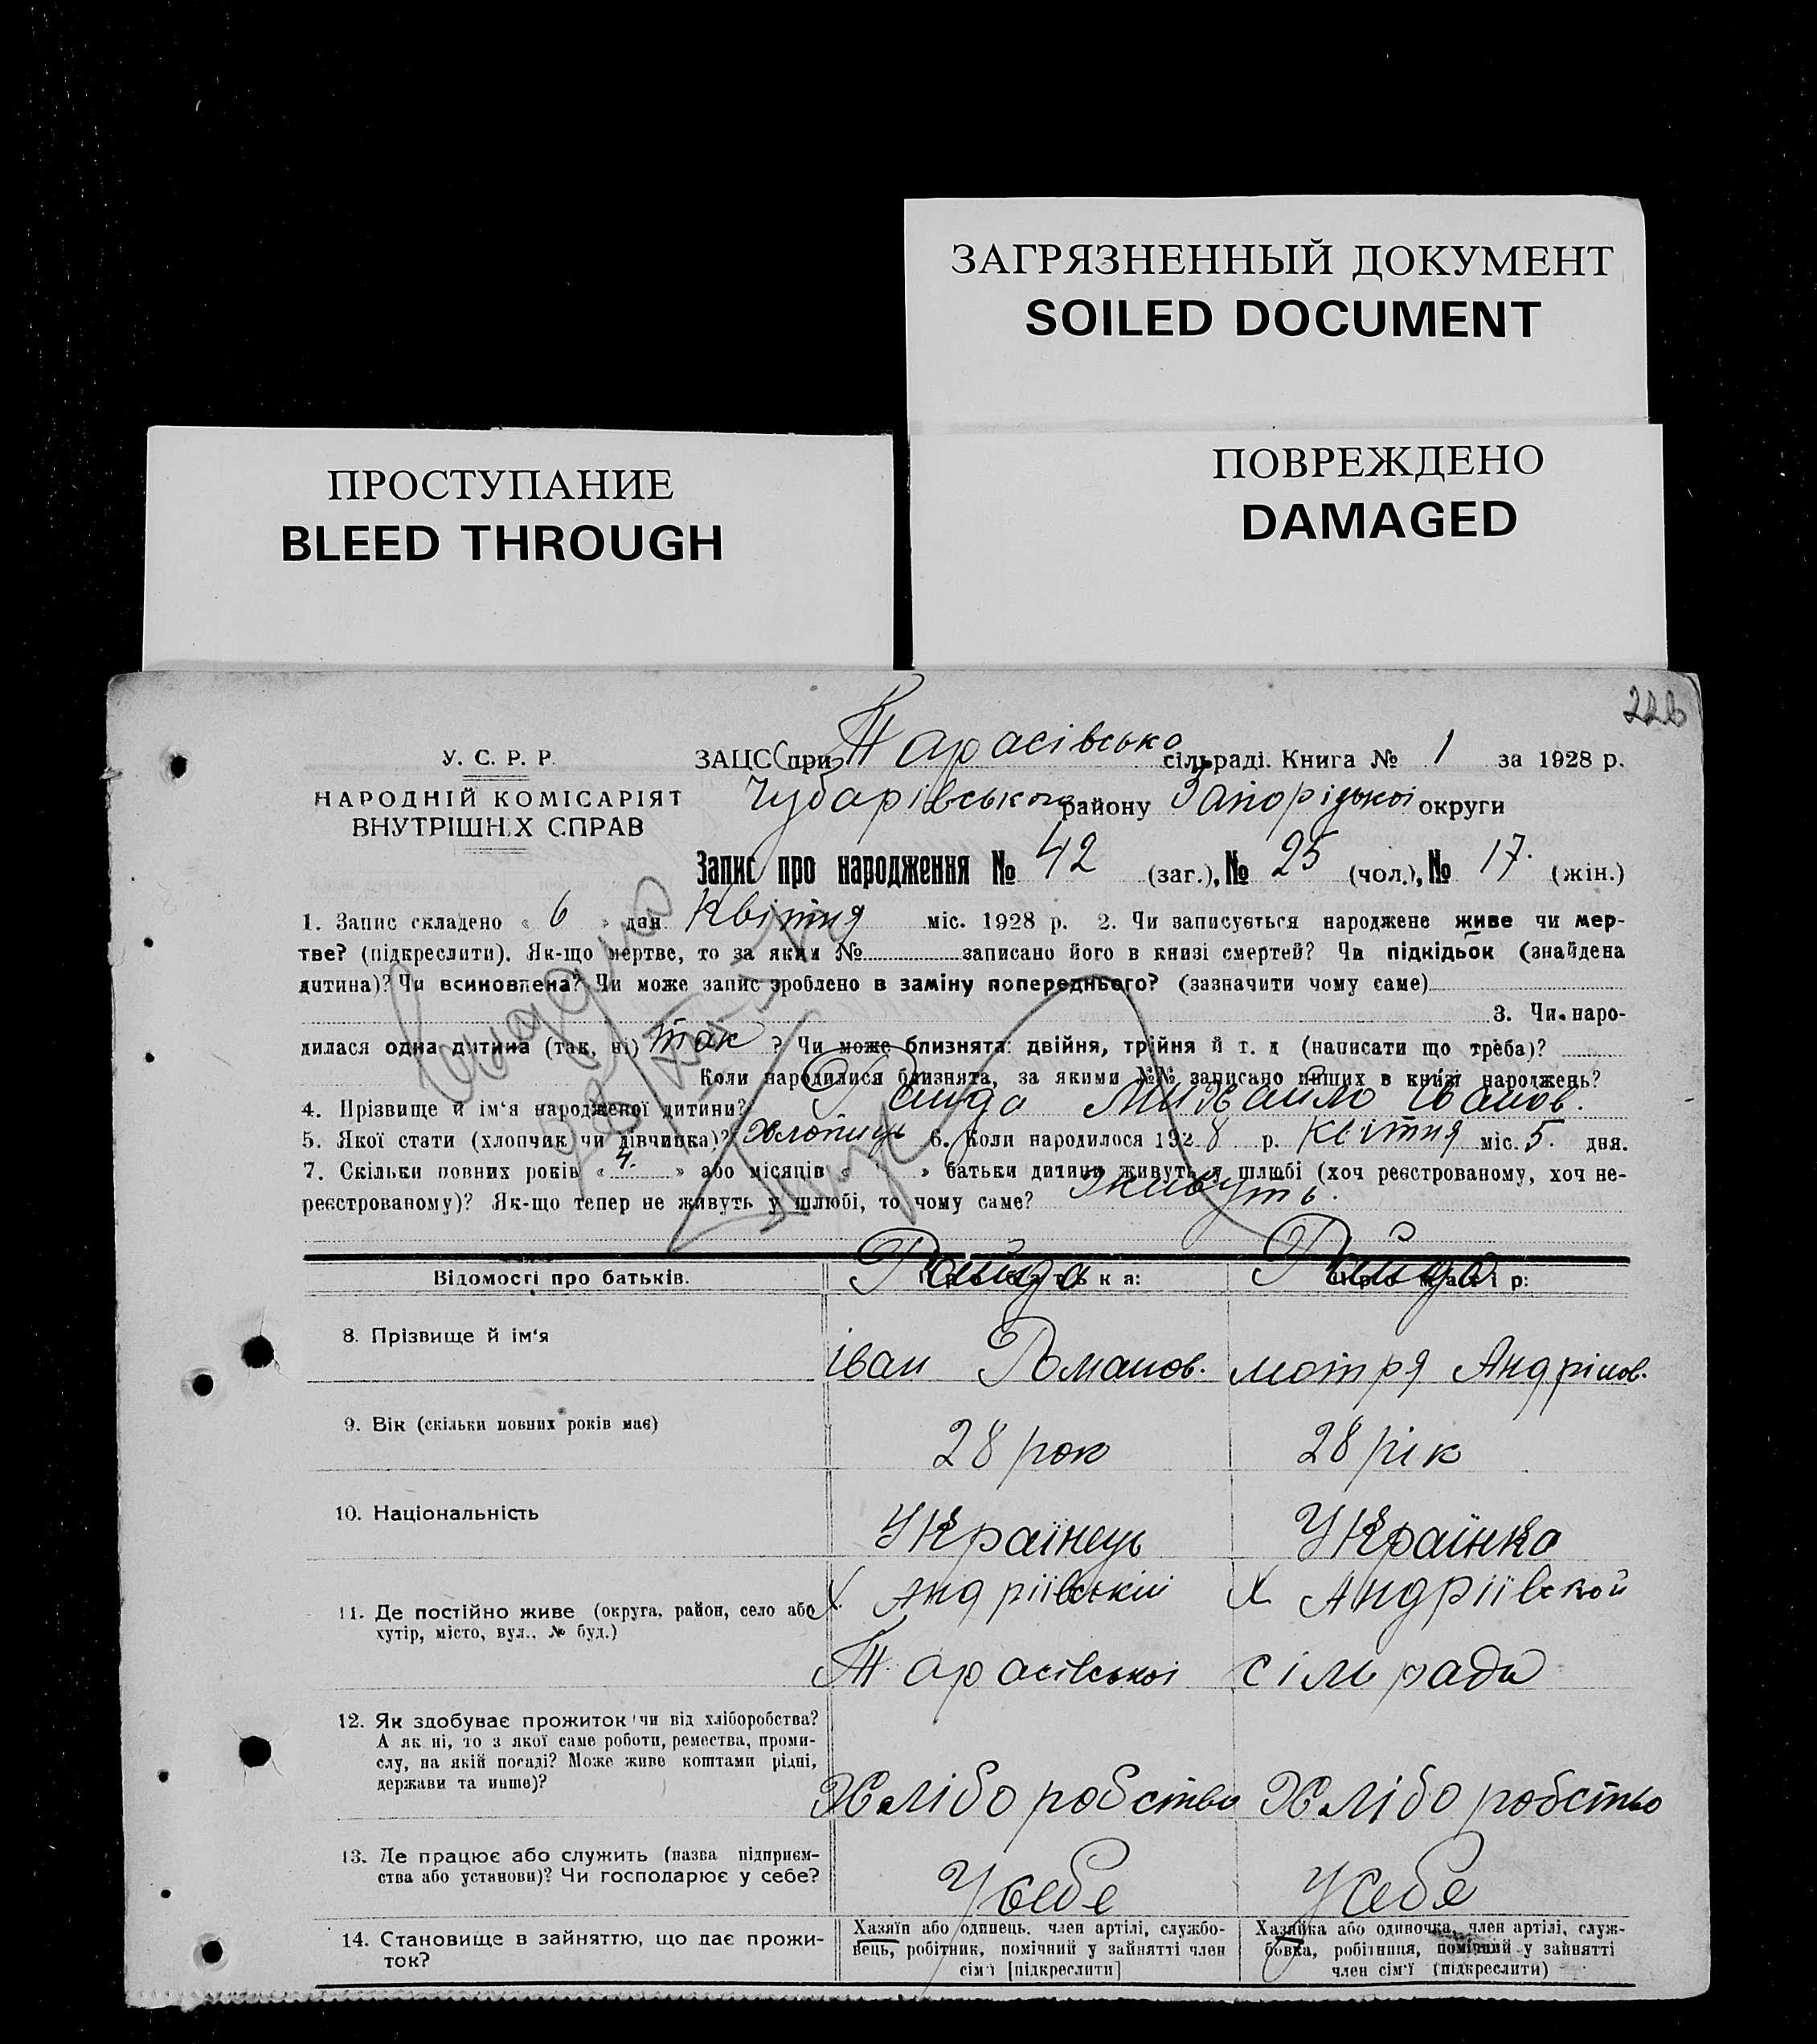 ЗАГРЯЗНЕННЫЙ ДОКУМЕНТ
SOILED DOCUMENT
ПРОСТУПАНИЕ
BLEED THROUGH
ПОВРЕЖДЕНО
DAMAGED
226
У. С. Р. Р.
НАРОДНІЙ КОМІСАРІЯТ
ВНУТРІШНІХ СПРАВ
ЗАЦС при Тарасівсько сільраді. Книга № 1 за 1928 р.
Чубарівського району Запоріцькоі округи
Запис про народження № 42 (заг.), № 25 (чол.), № 17. (жін.)
1. Запис складено « 6 » дня Квітня міс. 1928 р. 2. Чи записується народжене живе чи мер-
тве? (підкреслити). Як-що мертве, то за яким № записано його в книзі смертей? Чи підкідьок (знайдена
дитина)? Чи всиновлена? Чи може запис зроблено в заміну попереднього? (зазначити чому саме)
3. Чи наро-
дилася одна дитина (так, ні) так ? Чи може близнята: двійня, трійня й т. д (написати що треба)?
Коли народилися близнята, за якими №№ записано инших в книзі народжень?
4. Прізвище й ім'я народженої дитини? Михайло Іванов.
5. Якої стати (хлопчик чи дівчинка)? Хлопиць 6. Коли народилося 1928 р. Квітня міс. 5. дня.
7. Скільки повних років « 4. » або місяців « » батьки дитини живуть у шлюбі (хоч реєстрованому, хоч не-
реєстрованому)? Як-що тепер не живуть у шлюбі, то чому саме? живуть.
Відомості про батьків. Про батька: Про матір:
8. Прізвище й ім'я
іван Романов. мотря Андріıов.
9. Вік (скільки повних років має) 28 рок 28 рік
10. Національність Українець Українка
11. Де постійно живе (округа, район, село або х. Андріївскій х Андріївской
хутір, місто, вул., № буд.)
Тарасівськоі сільради
12. Як здобуває прожиток чи від хліборобства?
А як ні, то з якої саме роботи, ремества, проми-
слу, на якій посаді? Може живе коштами рідні,
держави та инше)?
Хліборобство Хліборобство
13. Де працює або служить (назва підприєм-
ства або установи)? Чи господарює у себе? Усебе Усебе
14. Становище в зайняттю, що дає прожи-
ток?
Хазяїн або одинець, член артілі, службо-
вець, робітник, помічний у зайнятті член
сім'ї [підкреслити]
Хазяйка або одиночка, член артілі, служ-
бовка, робітниця, помічний у зайнятті
член сім'ї (підкреслити)